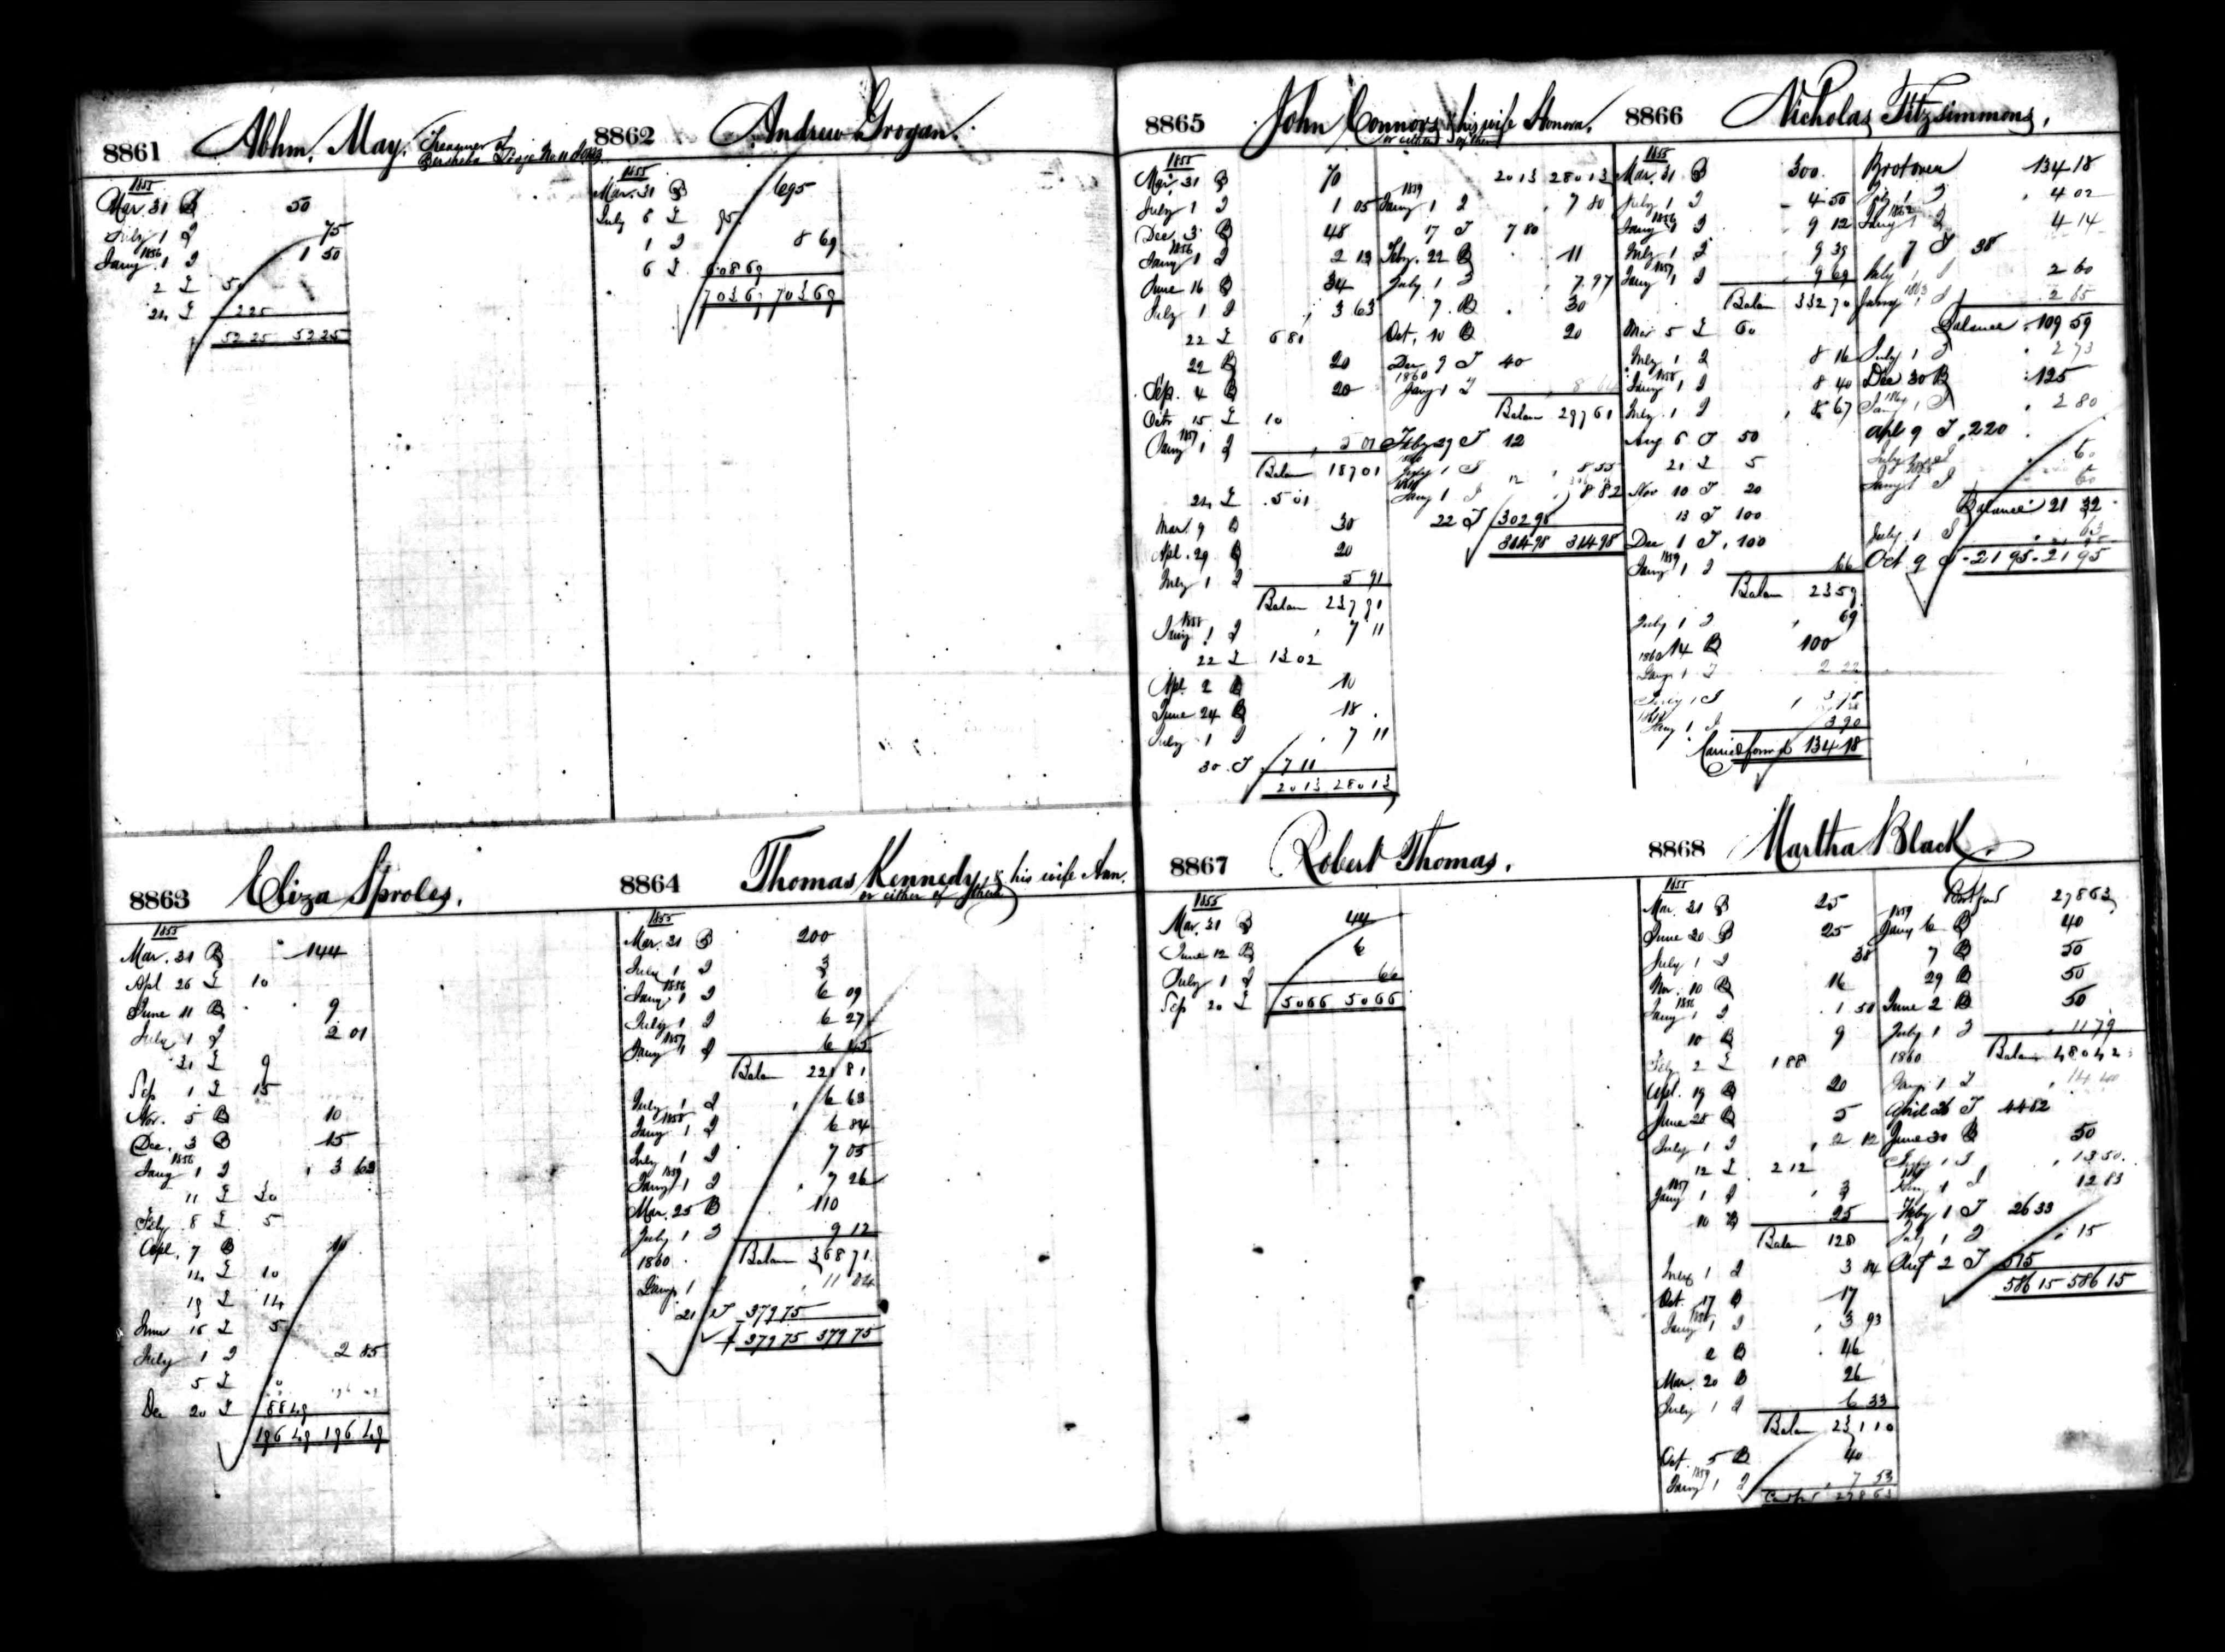 8861 Abhm. May. Treasurer of
Bersheba Lodge No 11
1855
Mar 31 B 50
July 1 I 75
1856
Jany 1 I 1 50
2 I 50
24 I 2 25
52 25 52 25
8862 Andrew Grogan.
1855
Mar. 31 B 695
July 6 I 95
1 I 8 69
6 I 608 69
703 69 703 69
8863 Eliza Sproles.
1855
Mar. 31 B 144
Apl 26 I 10
June 11 B 9
July 1 I 2 01
21 I 9
Sep 1 I 15
Nov. 5 B 10
Dec. 3 B 15
1856
Jany 1 I 3 63
11 I 30
Feby 8 I 5
Apl. 7 B 10
14 I 10
19 I 14
June 16 I 5
July 1 I 2 85
5 I 10
Dec 20 I 88 49
196 49 196 49
8864 Thomas Kennedy, & his wife Ann.
or either of them
1855
Mar. 31 B 200
July 1 I 3
1856
Jany 1 I 6 09
July 1 I 6 27
1857
Jany 1 I 6 45
Balan 221 81
July 1 I 6 63
1858
Jany 1 I 6 84
July 1 I 7 05
1859
Jany 1 I 7 26
Mar. 25 B 110
July 1 I 9 12
1860 Balan 368 71
Jany 1 I 11 04
21 I 379 75
379 75 379 75
8865 John Connors & his wife Honora.
or either of them
1855
Mar. 31 B 70
July 1 I 1 05
Dec 3 B 48
1856
Jany 1 I 2 13
June 16 B 34
July 1 I 3 63
22 I 6 81
22 B 20
Sep. 4 B 20
Octr 15 I 10
1857
Jany 1 I 5 01
Balan 187 01
24 I 5 01
Mar. 9 B 30
Apl. 29 B 20
July 1 I 5 91
Balan 237 91
1858
Jany 1 I 7 11
22 I 13 02
Apl. 2 B 10
June 24 B 18
July 1 I 7 11
30 I 7 11
20 13 280 13
20 13 280 13
1859
Jany 1 I 7 80
17 I 7 80
Feby. 22 B 11
July 1 I 7 97
7 B 30
Oct. 10 B 20
Dec 9 I 40
1860
Jany 1 I 8 64
Balan 297 61
Feby 29 I 12
July 1 I 8 55
Jany 1 I 8 82
22 I 302 98
314 98 314 98
8866 Nicholas Fitzsimmons.
1855
Mar. 31 B 300
July 1 I 4 50
1856
Jany 1 I 9 12
July 1 I 9 39
1857
Jany 1 I 9 69
Balan 332 70
Mar 5 I 60
July 1 I 8 16
1858
Jany 1 I 8 40
July 1 I 8 67
Aug 6 I 50
21 I 5
Nov 10 I 20
13 I 100
Dec 1 I 100
1859
Jany 1 I 66
Balan 23 59
July 1 I 69
14 B 100
1860
Jany 1 I 2 22
July 1 I 3 75
Jany 1 I 3 90
Carried forwd 134 18
Brot over 134 18
July 1 I 4 02
1862
Jany 1 I 4 14
7 I 38
July 1 I 2 60
1863
Jany 1 I 2 65
Balance 109 59
July 1 I 2 73
Dec 30 B 125
1864
Jany 1 I 2 80
Apl 9 I 220
July 1 I 60
Jany 1 I 60
Balance 21 32
July 1 I 63
Oct 9 I 21 95 21 95
8867 Robert Thomas.
1855
Mar. 31 B 44
June 12 B 6
July 1 I 66
Sep 20 I 50 66 50 66
8868 Martha Black.
1855
Mar. 31 B 25
June 20 B 25
July 1 I 38
Nov. 10 B 16
1856
Jany 1 I 1 50
10 B 9
Feby 2 I 1 88
Apl. 19 B 20
June 25 B 5
July 1 I 2 12
12 I 2 12
1857
Jany 1 I 3
10 B 25
Balan 128
July 1 I 3 84
Oct. 17 B 17
1858
Jany 1 I 3 93
2 B 46
Mar. 20 B 26
July 1 I 6 33
Balan 231 10
Oct. 5 B 40
1859
Jany 1 I 7 53
278 63
Brot ford 278 63
1859
Jany 6 B 40
7 B 50
29 B 50
June 2 B 50
July 1 I 11 79
1860 Balan 480 42
Jany 1 I 14 40
April 26 I 44 62
June 30 B 50
July 1 I 13 50
Jany 1 I 12 83
Feby 1 I 26 33
July 1 I 15
Aug 2 I 515
586 15 586 15